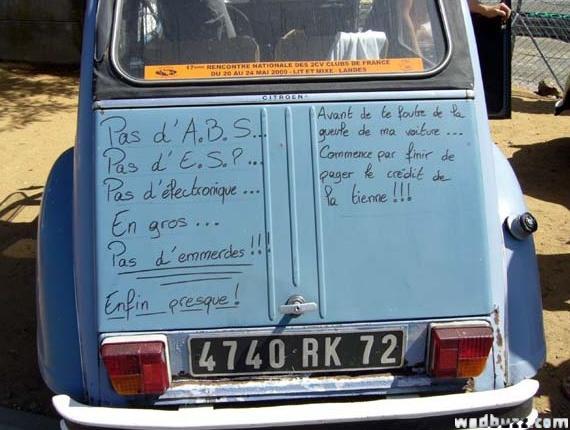 17ème RENCONTRE NATIONALE DES 2CV CLUBS DE FRANCE
DU 20 AU 24 MAI 2009 - LIT ET MIXE - LANDES
CITROËN
Pas d'A.B.S...
Pas d'E.S.P...
Pas d'électronique...
En gros...
Pas d'emmerdes!!!
Enfin presque!
Avant de te foutre de la
gueule de ma voiture...
Commence par finir de
payer le crédit de
la tienne!!!
4740 RK 72
wadbuzz.com